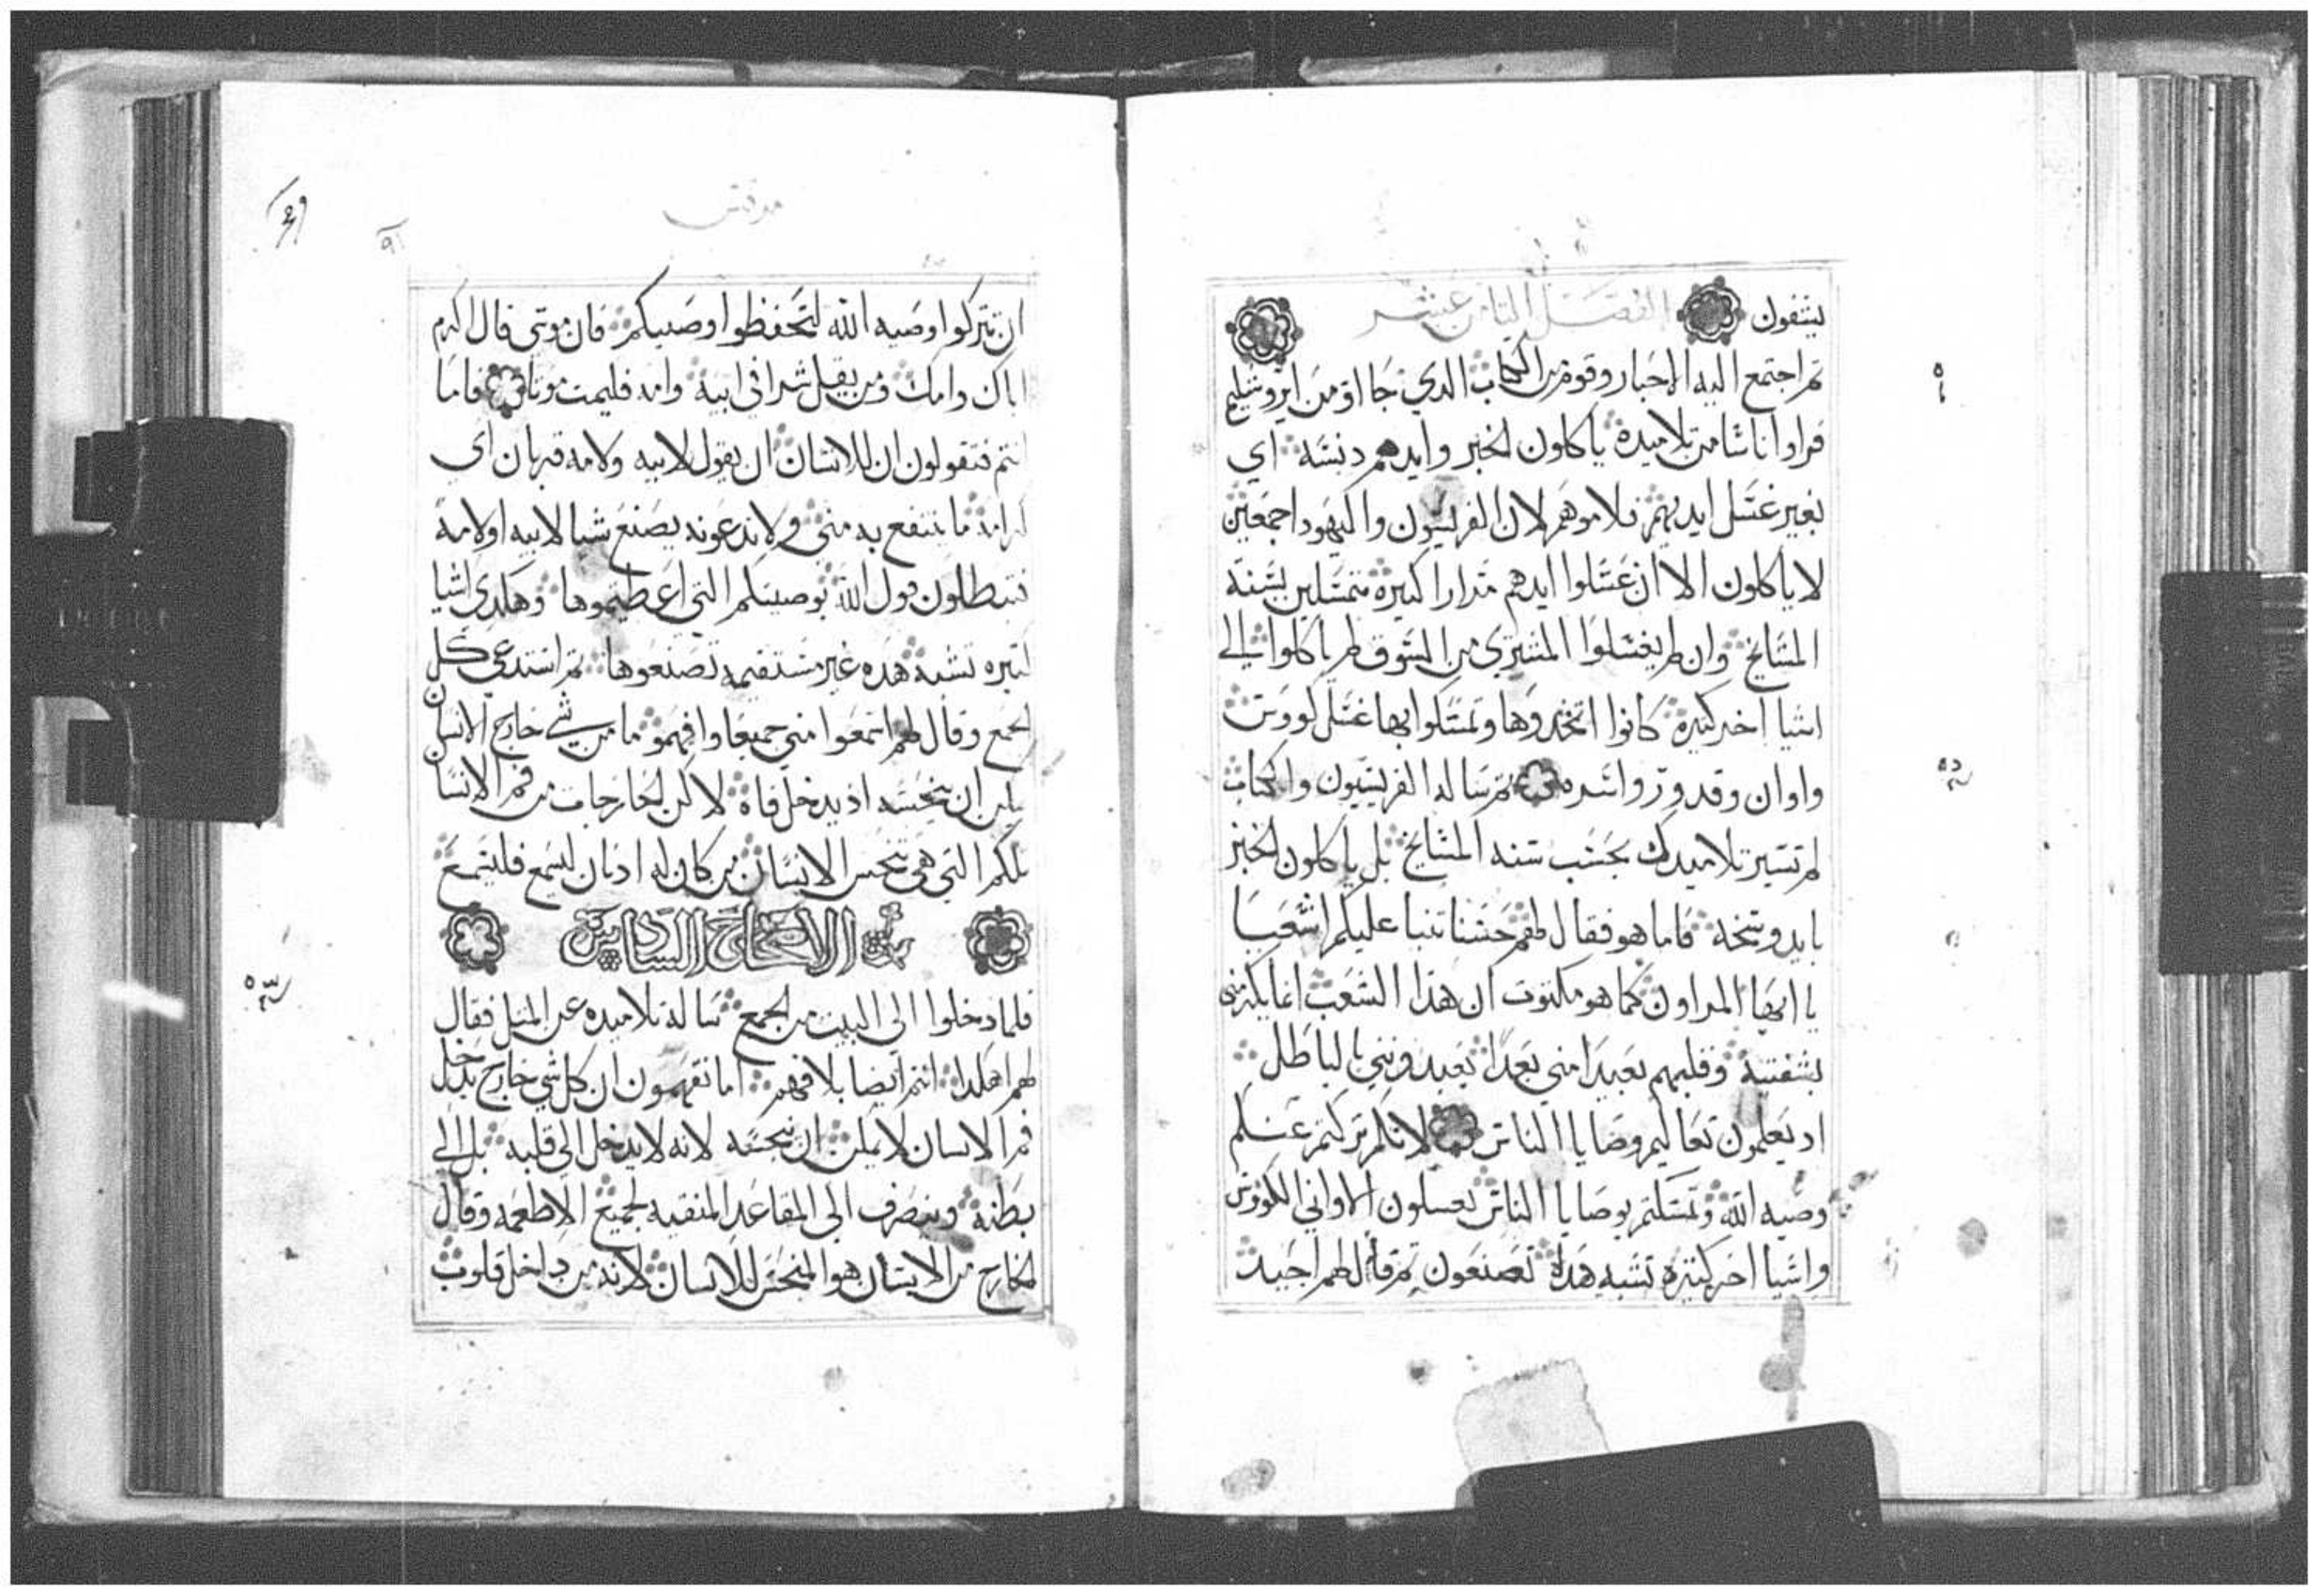 يشفون الفصل الثامن عشر
ثم اجتمع اليه الاحبار وقوم من الكتاب الذي جااو من ايروشليم
فراوا اناسا من تلاميده ياكلون الخبز وايدهم دنسه اي
بغير غسل ايديهم فلاموهم لان الفريسيون واليهود اجمعين
لا ياكلون الا ان غسلوا ايدهم مرارا كثيره متمسكين بسنة
المشايخ وان لم يغسلوا المشتري من السوق لم ياكلوا الي
اشيا اخر كثيره كانوا اتخدوها وتمسكوا بها غسل كووس
واوان وقدور واسره ثم ساله الفريسيون والكتاب
لم تسير تلاميدك بحسب سنه المشايخ بل ياكلون الخبز
بايد وسخه فاما هو فقال لهم حسنا تنبا عليكم اشعيا
يا ايها المراون كما هو مكتوب ان هذا الشعب انما يكرمني
بشفتيه وقلبهم بعيدا مني بعدا يعبدونني بالباطل
اد يعلمون تعاليم وصايا الناس لانكم تركتم عنكم
وصيه الله وتمسكتم بوصايا الناس تغسلون الاواني الكووس
واشيا اخر كثيره تشبه هده تصنعون ثم قال لهم اجيد
مرقس
٩١
ان تتركوا وصيه الله لتحفظوا وصيتكم فان موسى قال اكرم
اباك وامك ومن يقل شرا في ابيه وامه فليمت موتا فاما
انتم فتقولون ان للانسان ان يقول لابيه ولامه قربان اي
كرامه ما تنتفع به مني ولا تدعونه يصنع شيا لابيه او لامه
فتبطلون قول الله بوصيتكم التي اعطيتموها وهكدى اشيا
كثيره تشبه هده غير مستقيمه تصنعوها ثم استدعى كل
الجمع وقال لهم اسمعوا مني جميعا وافهمو ما من شي خارج الانسان
يمكن ان ينجسه اذ يدخل فاه لاكن الخارجات من فم الانسان
تلكم التي هي تنجس الانسان من كان له ادنان ليسمع فليسمع
الاصحاح السادس
فلما دخلوا الى البيت من الجمع ساله تلاميده عن المثل فقال
لهم اهكدا انتم ايضا بلا فهم اما تفهمون ان كل شي خارج يدخل
فم الانسان لا يمكن ان ينجسه لانه لا يدخل الى قلبه بل الي
بطنه وينصرف الى المقاعد المنقيه لجميع الاطعمه وقال
الخارج من الانسان هو المنجس للانسان لانه من داخل قلوب